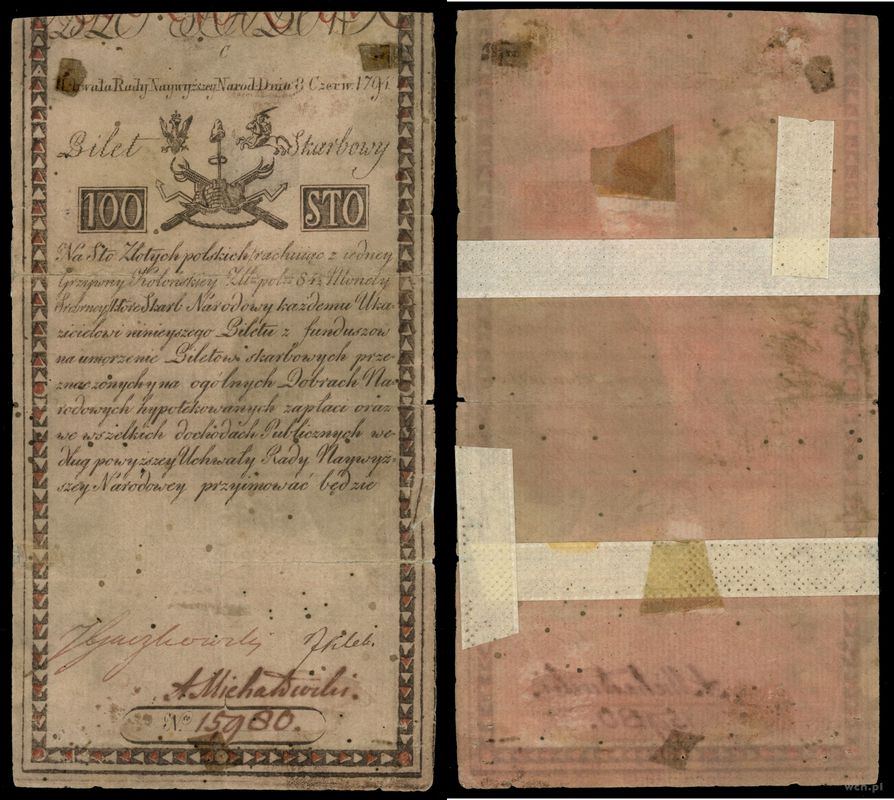 C
Uchwała Rady Naywyższey Narod: Dnia 8 Czerw. 1794
Bilet Skarbowy
100 STO
Na Sto Złotych polskich rachuiąc z iedney
Grzywny Kolońskiey Złł: pol: 84½ Monety
Srebrney, które Skarb Narodowy każdemu Uka-
zicielowi ninieyszego Biletu z funduszow
na umorzenie Biletow skarbowych prze-
znaczonych y na ogólnych Dobrach Na-
rodowych hypotekowanych zapłaci oraz
we wszelkich dochodach Publicznych we-
dług powyższey Uchwały Rady Naywyż-
szey Narodowey przyimować będzie
JGaczkowski J Kleb.
A. Michałowski.
No 15980.
wcn.pl